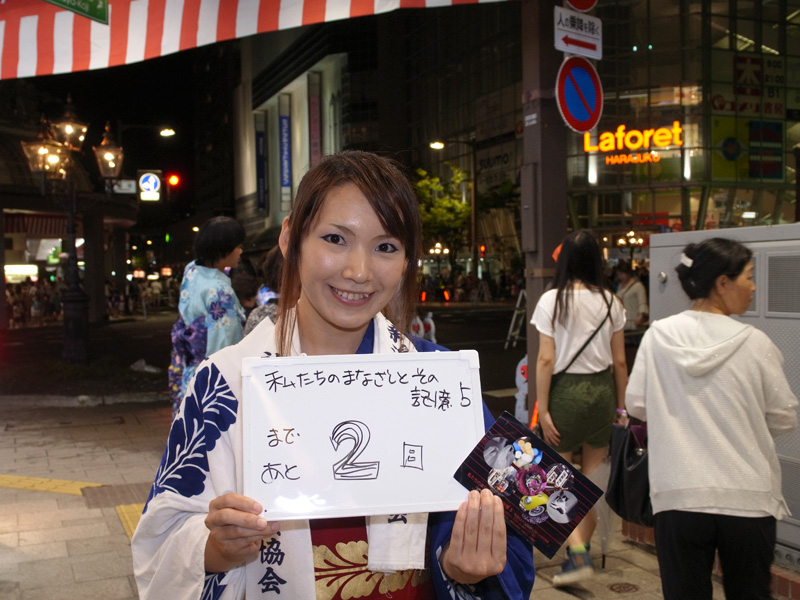 人の乗降を除く
Laforet
HARAJUKU
私たちのまなざしとその
記憶 5
まで
あと 2 回
協会